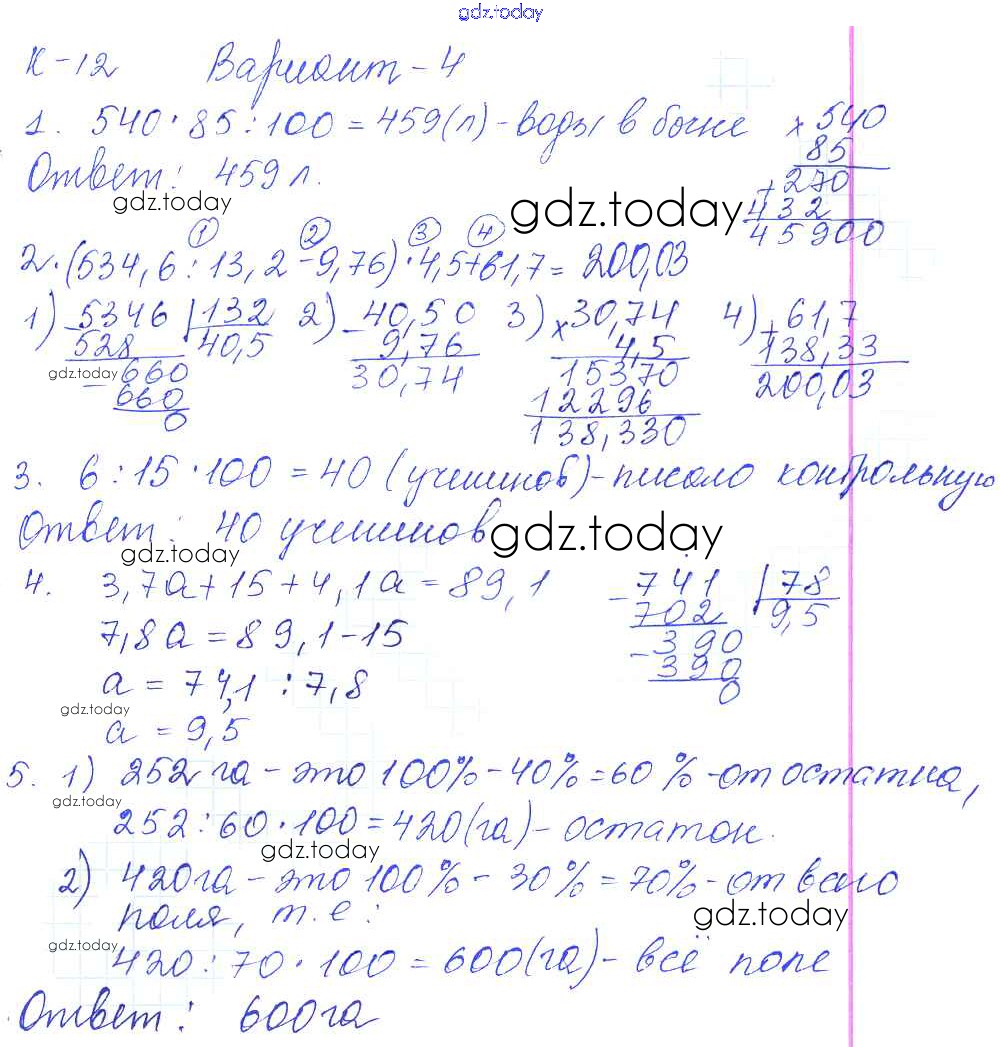 gdz.today
К-12 Вариант-4
1. 540·85:100=459(л)-воды в бочке
Ответ: 459 л.
× 540
85
+ 270
432
45900
gdz.today
gdz.today
1 2 3 4
2. (534,6:13,2-9,76)·4,5+61,7=200,03
1) - 5346 | 132
528 40,5
- 660
660
0
gdz.today
2) - 40,50
9,76
30,74
3) × 30,74
4,5
15370
12296
138,330
4) + 61,7
138,33
200,03
3. 6:15·100=40 (учеников)-писало контрольную
Ответ: 40 учеников
gdz.today
gdz.today
4. 3,7a+15+4,1a=89,1
7,8a=89,1-15
a=74,1:7,8
a=9,5
gdz.today
- 741 | 78
702 9,5
- 390
390
0
5. 1) 252 га-это 100%-40%=60%-от остатка,
gdz.today
252:60·100=420(га)-остаток.
gdz.today
2) 420га-это 100%-30%=70%-от всего
поля, т.е:
gdz.today
gdz.today
420:70·100=600(га)-всё поле
Ответ: 600га